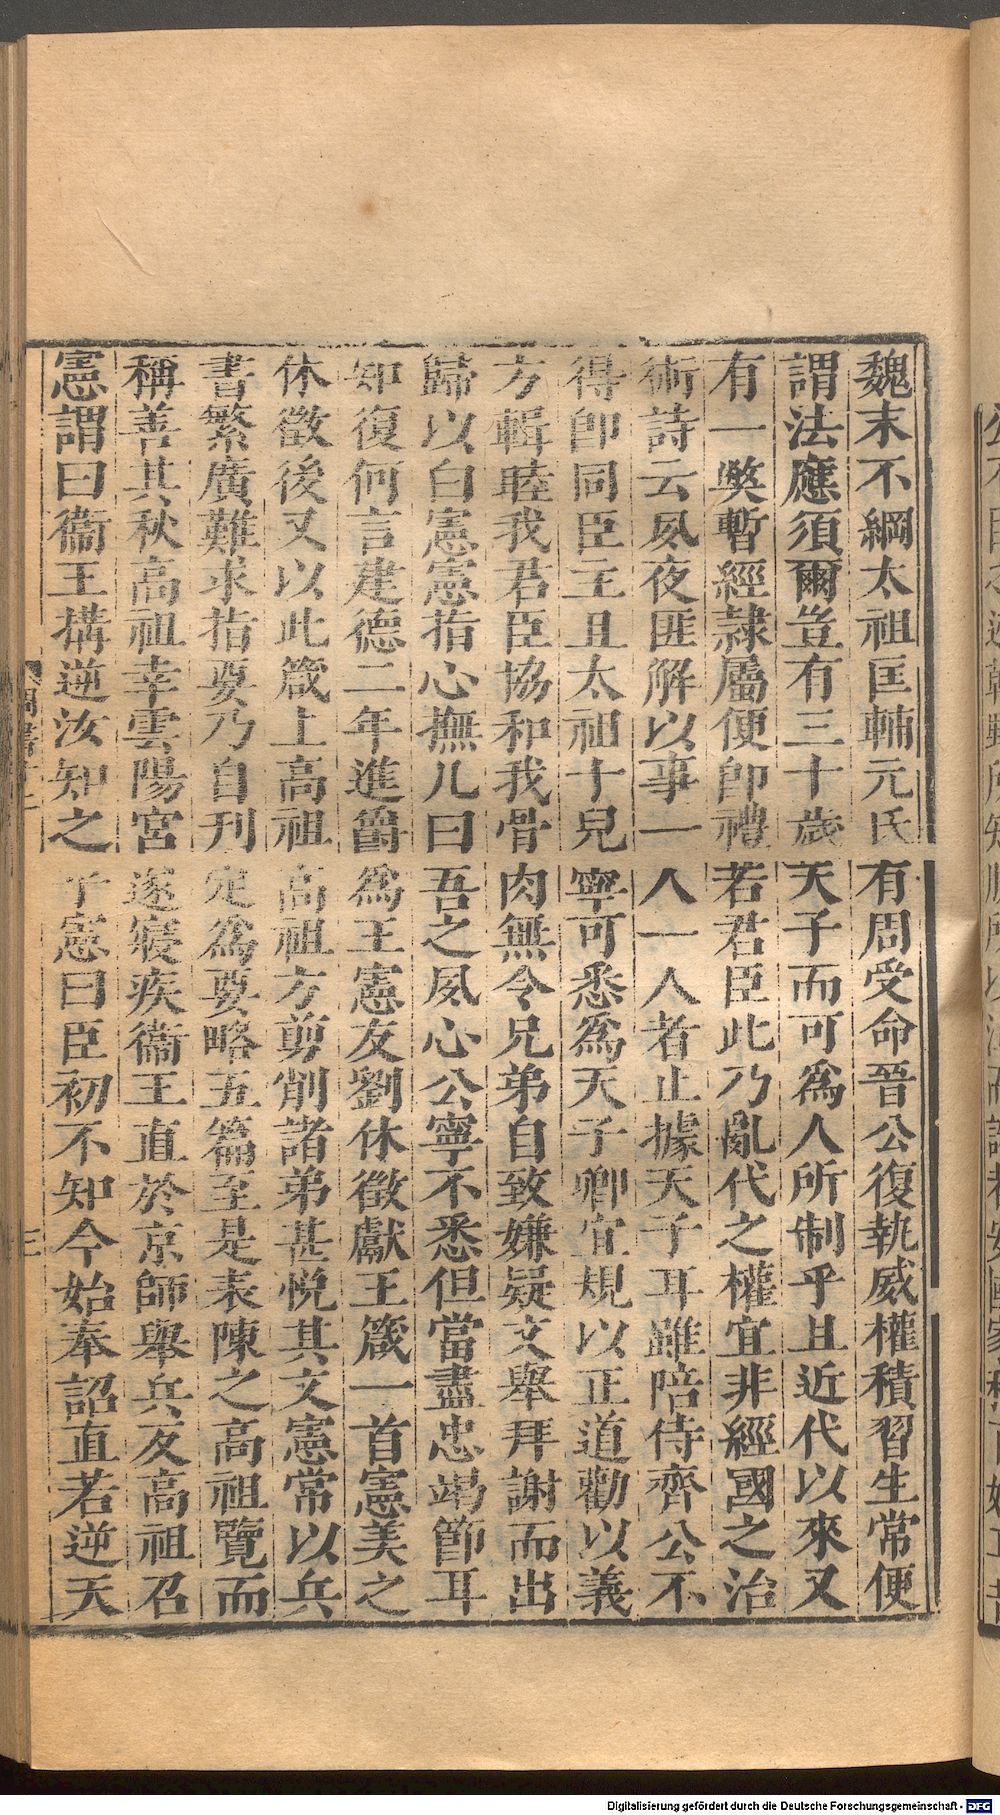 魏末不綱太祖匡輔元氏有周受命晉公復執威權積習生常便
謂法應須爾豈有三十歲天子而可為人所制乎且近代以來又
有一獘暫經隷屬便卽禮若君臣此乃亂代之權宜非經國之治
術詩云夙夜匪解以事一人一人者止據天子耳雖陪侍齊公不
得卽同臣主且太祖十兒寧可悉為天子卿宜規以正道勸以義
方輯睦我君臣協和我骨肉無令兄弟自致嫌疑文舉拜謝而出
歸以白憲憲指心撫几曰吾之夙心公寧不悉但當盡忠竭節耳
知復何言建德二年進爵為王憲友劉休徵獻王箴一首憲美之
休徵後又以此箴上高祖高祖方剪削諸弟甚悅其文憲常以兵
書繁廣難求指要乃自刊定為要略五篇至是表陳之高祖覽而
稱善其秋高祖幸雲陽宮遂寢疾衞王直於京師舉兵反高祖召
憲謂曰衞王搆逆汝知之乎憲曰臣初不知今始奉詔直若逆天
三
Digitalisierung gefördert durch die Deutsche Forschungsgemeinschaft - DFG